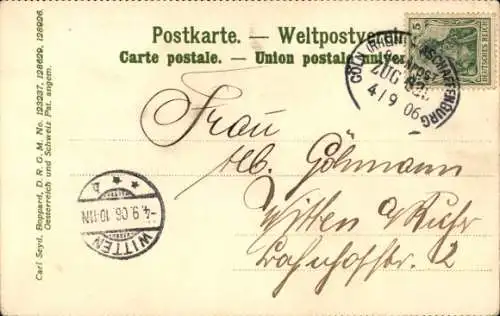 Postkarte. — Weltpostverein
Carte postale. — Union postale univer
5
DEUTSCHES REICH
CÖLN (RHEIN) ASCHAFFENBURG
BAHNPOST
ZUG
4/9 06
Frau
Alb. Göhmann
Witten a/Ruhr
Bahnhofstr. 2
WITTEN
-4.9.06.10-11N
* * b
Carl Seyd, Boppard, D. R. G. M. No. 123237, 128629, 128926.
Oesterreich und Schweiz Pat. angem.